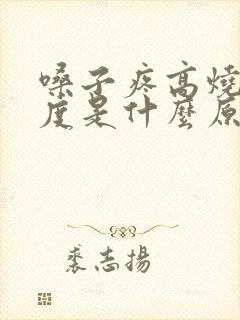 嗓子疼高燒
度是什麼原
裘志揚